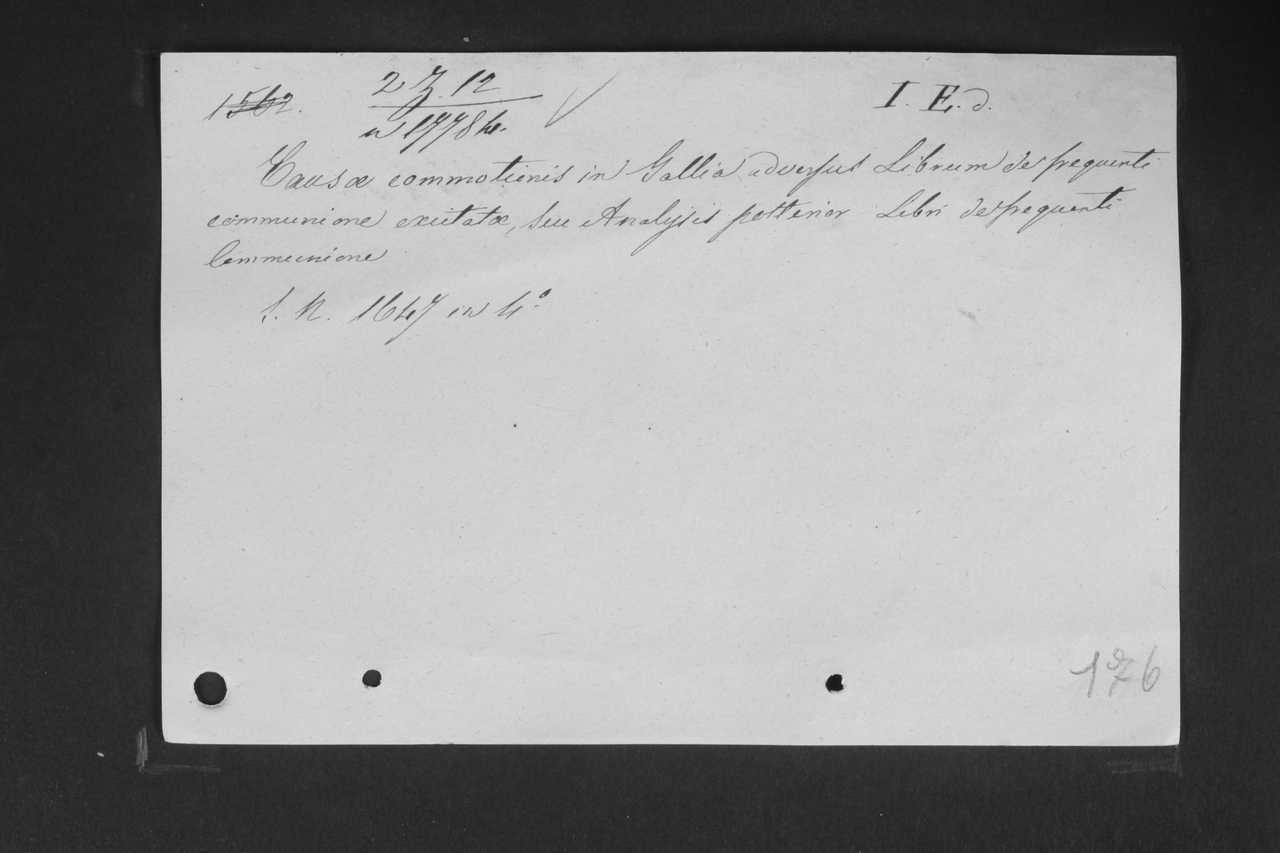 1562. 2 Z. 12 I. E. d.
in 1778 4o.
Causæ commotionis in Gallia adversus Librum de frequenti
communione excitatæ, seu Analysis posterior Libri de frequenti
Communione
S. N. 1647 in 4º
176